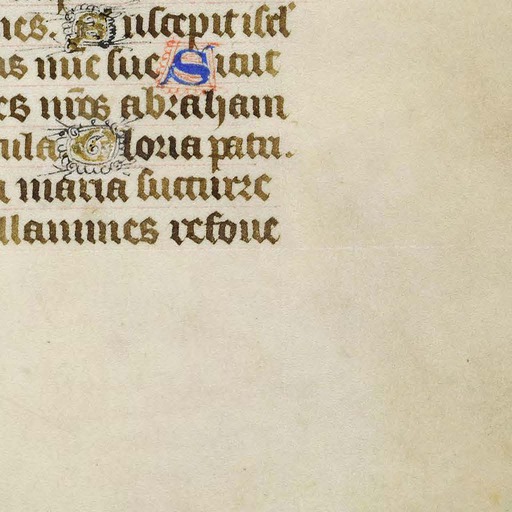 nes. Suscepit isrl'
as mie sue Sicut
es nros abraham
cula Gloria patri.
a maria succurre
llanimes refove